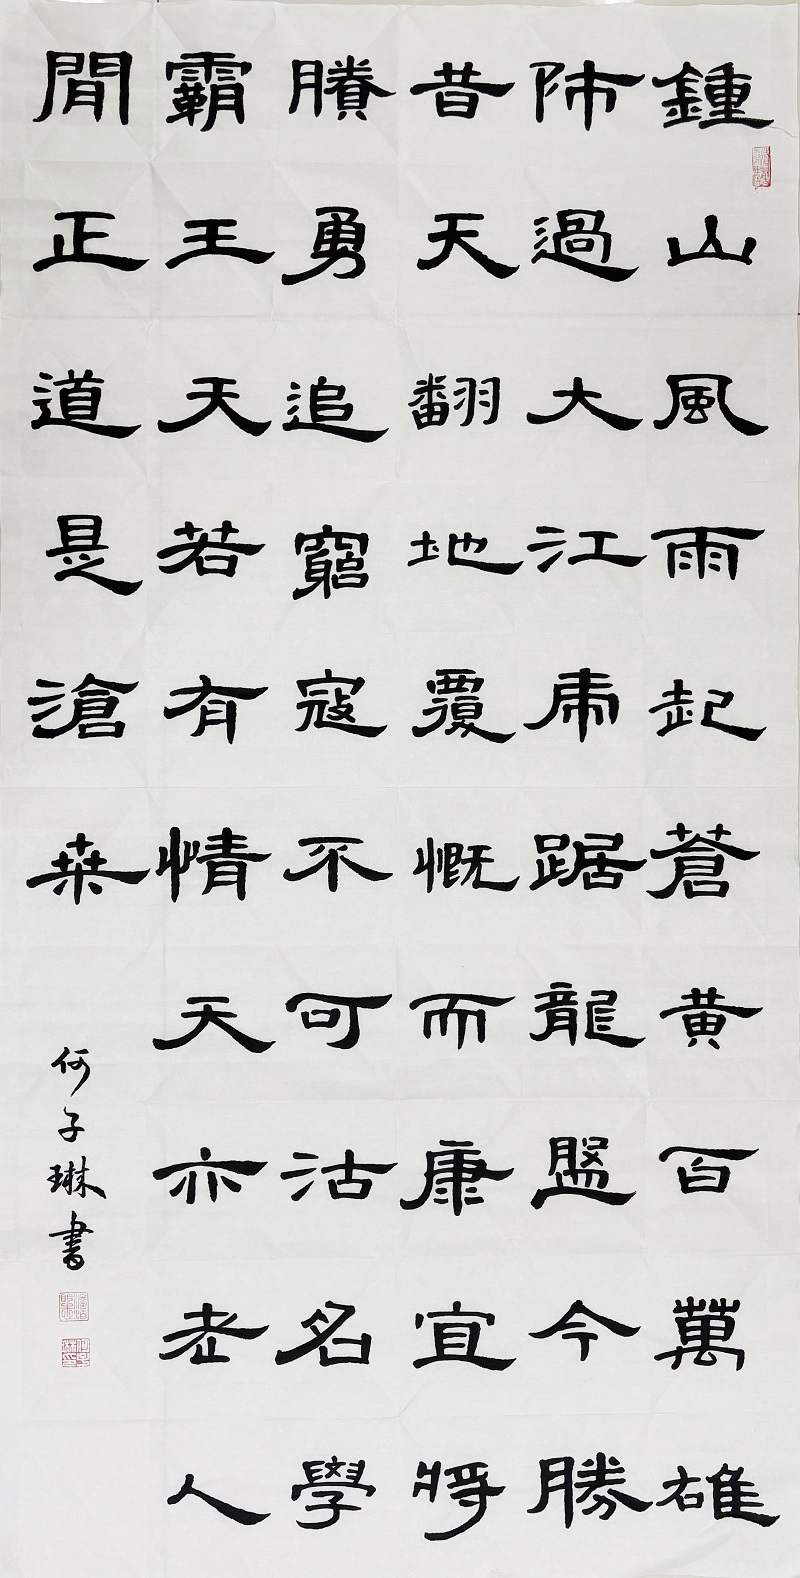 鍾山風雨起蒼黃百萬雄
師過大江虎踞龍盤今勝
昔天翻地覆慨而康宜將
賸勇追窮寇不可沽名學
霸王天若有情天亦老人
閒正道是滄桒
何子琳書